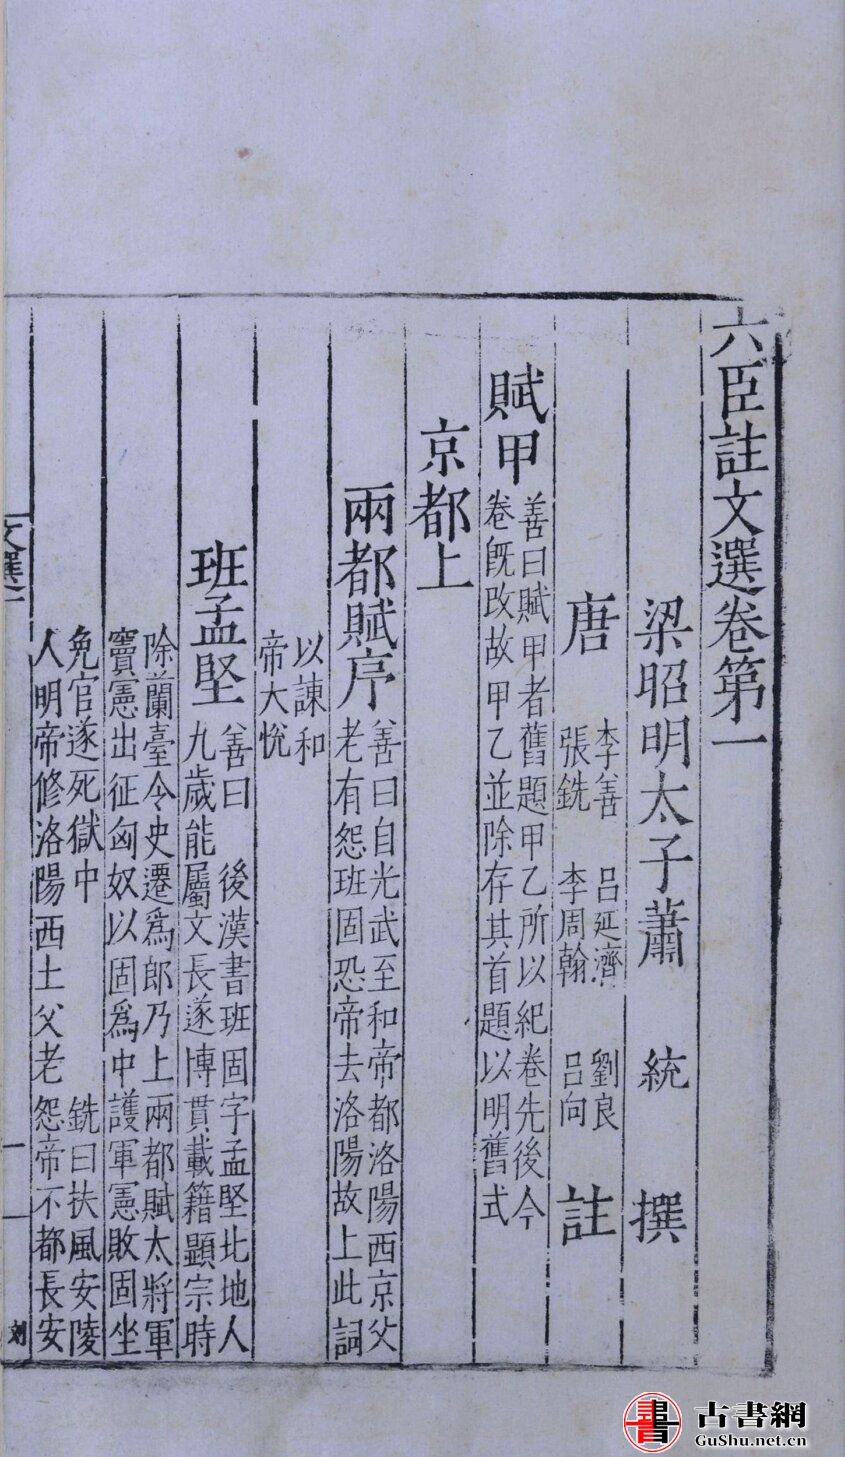 六臣註文選卷第一
梁昭明太子蕭統撰
唐
李善 呂延濟 劉良
張銑 李周翰 呂向
註
賦甲
善曰賦甲者舊題甲乙所以紀卷先後今
卷旣改故甲乙並除存其首題以明舊式
京都上
兩都賦序
善曰自光武至和帝都洛陽西京父
老有怨班固恐帝去洛陽故上此詞
以諫和
帝大悅
班孟堅
善曰 後漢書班固字孟堅北地人
九歲能屬文長遂博貫載籍顯宗時
除蘭臺令史遷爲郎乃上兩都賦太將軍
竇憲出征匈奴以固爲中護軍憲敗固坐
免官遂死獄中 銑曰扶風安陵
人明帝修洛陽西土父老怨帝不都長安
文選一
一
刘
書
古書網
GuShu.net.cn